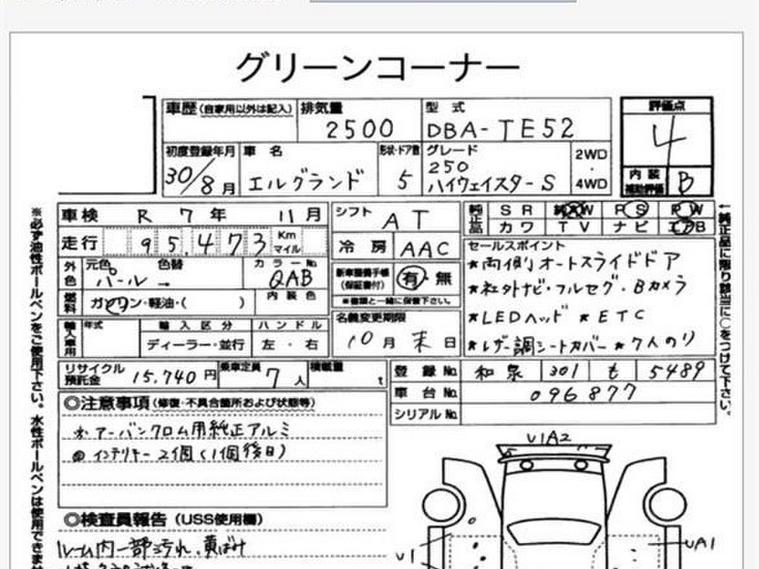 グリーンコーナー
車歴 (自家用以外は記入) 排気量 2500 型式 DBA-TE52
評価点 4
内装補助評価 B
初度登録年月 30/8月 車名 エルグランド 形状・ドア数 5 グレード 250 ハイウェイスターS 2WD・4WD
車検 R 7年 11月 シフト AT
純正品 SR AW PS PW
カワ TV ナビ エアB
走行 95,473 Km マイル 冷房 AAC
セールスポイント
★両側オートスライドドア
★社外ナビ・フルセグ・Bカメラ
★LEDヘッド ★ETC
★レザー調シートカバー ★7人のり
外色 元色 パール→ 色替 カラーNo. QAB
新車整備手帳 (保証書付) 有・無
※書類と一緒に保管下さい。
燃料 ガソリン・軽油・( ) 内装色
名義変更期限 10月末日
輸入車用 年式 輸入区分 ディーラー・並行 ハンドル 左・右
リサイクル預託金 15,740円 乗車定員 7人 積載量 t
登録No. 和泉 301 も 5489
車台No. 096877
シリアルNo.
◎注意事項 (修復・不具合箇所および状態等)
※アーバンクロム用純正アルミ
◎インテリキー2個(1個後日)
◎検査員報告 (USS使用欄)
ルーム内一部汚れ、黄ばみ
U1A2
U1
UA1
※必ず油性ボールペンをご使用下さい。水性ボールペンは使用できませ
←純正品に限り該当に○をつけて下さい。